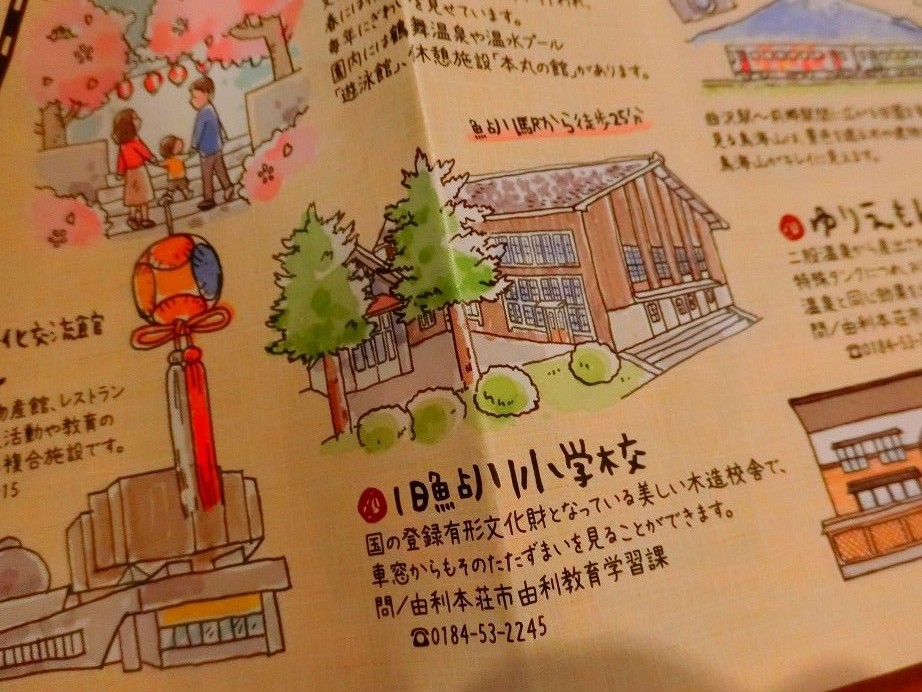 春には
毎年にぎわいを見せています。
園内には鶴舞温泉や温水プール
「遊泳館」、休憩施設「本丸の館」があります。
鮎川駅から徒歩25分
見る鳥海山は、
鳥海山がキレイに見えます。
ゆりえ
二股温泉から
特殊タンクにつめ
温泉と同じ効果
問/由利本荘
☎0184-53-
化交流館
物産館、レストラン
活動や教育の
複合施設です。
15
旧鮎川小学校
国の登録有形文化財となっている美しい木造校舎で、
車窓からもそのたたずまいを見ることができます。
問/由利本荘市由利教育学習課
☎0184-53-2245